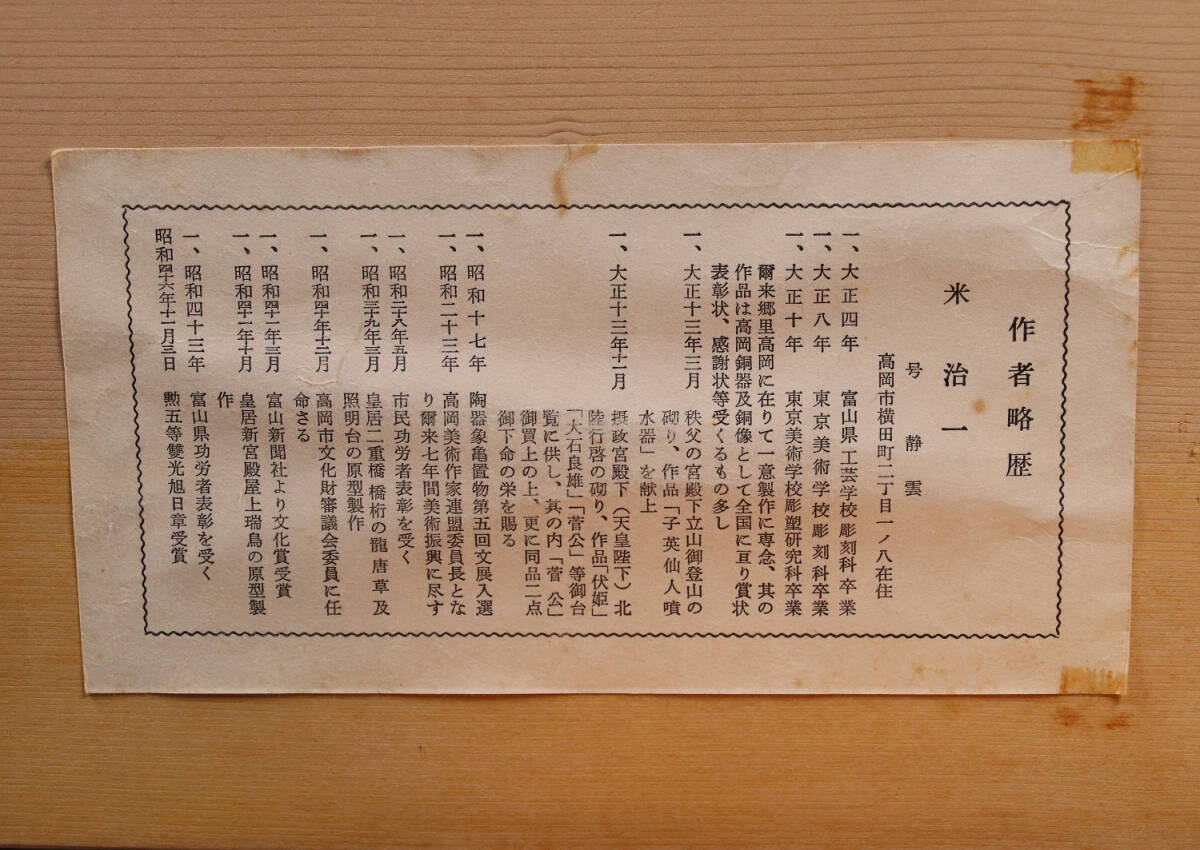 作者略歴
米治一
号静雲
高岡市横田町二丁目一ノ八在住
一、大正四年 富山県工芸学校彫刻科卒業
一、大正八年 東京美術学校彫刻科卒業
一、大正十年 東京美術学校彫塑研究科卒業
爾来郷里高岡に在りて一意製作に専念、其の
作品は高岡銅器及銅像として全国に亘り賞状
表彰状、感謝状等受くるもの多し
一、大正十三年三月 秩父の宮殿下立山御登山の
砌り、作品「子英仙人噴
水器」を献上
一、大正十三年十一月 摂政宮殿下（天皇陛下）北
陸行啓の砌り、作品「伏姫」
「大石良雄」「菅公」等御台
覧に供し、其の内「菅公」
御買上の上、更に同品二点
御下命の栄を賜る
一、昭和十七年 陶器象亀置物第五回文展入選
一、昭和二十三年 高岡美術作家連盟委員長とな
り爾来七年間美術振興に尽す
一、昭和二十八年五月 市民功労者表彰を受く
一、昭和三十九年三月 皇居二重橋橋桁の龍唐草及
照明台の原型製作
一、昭和四十年十二月 高岡市文化財審議会委員に任
命さる
一、昭和四十一年三月 富山新聞社より文化賞受賞
一、昭和四十一年十月 皇居新宮殿屋上瑞鳥の原型製
作
一、昭和四十三年 富山県功労者表彰を受く
昭和四十六年十一月三日 勲五等雙光旭日章受賞